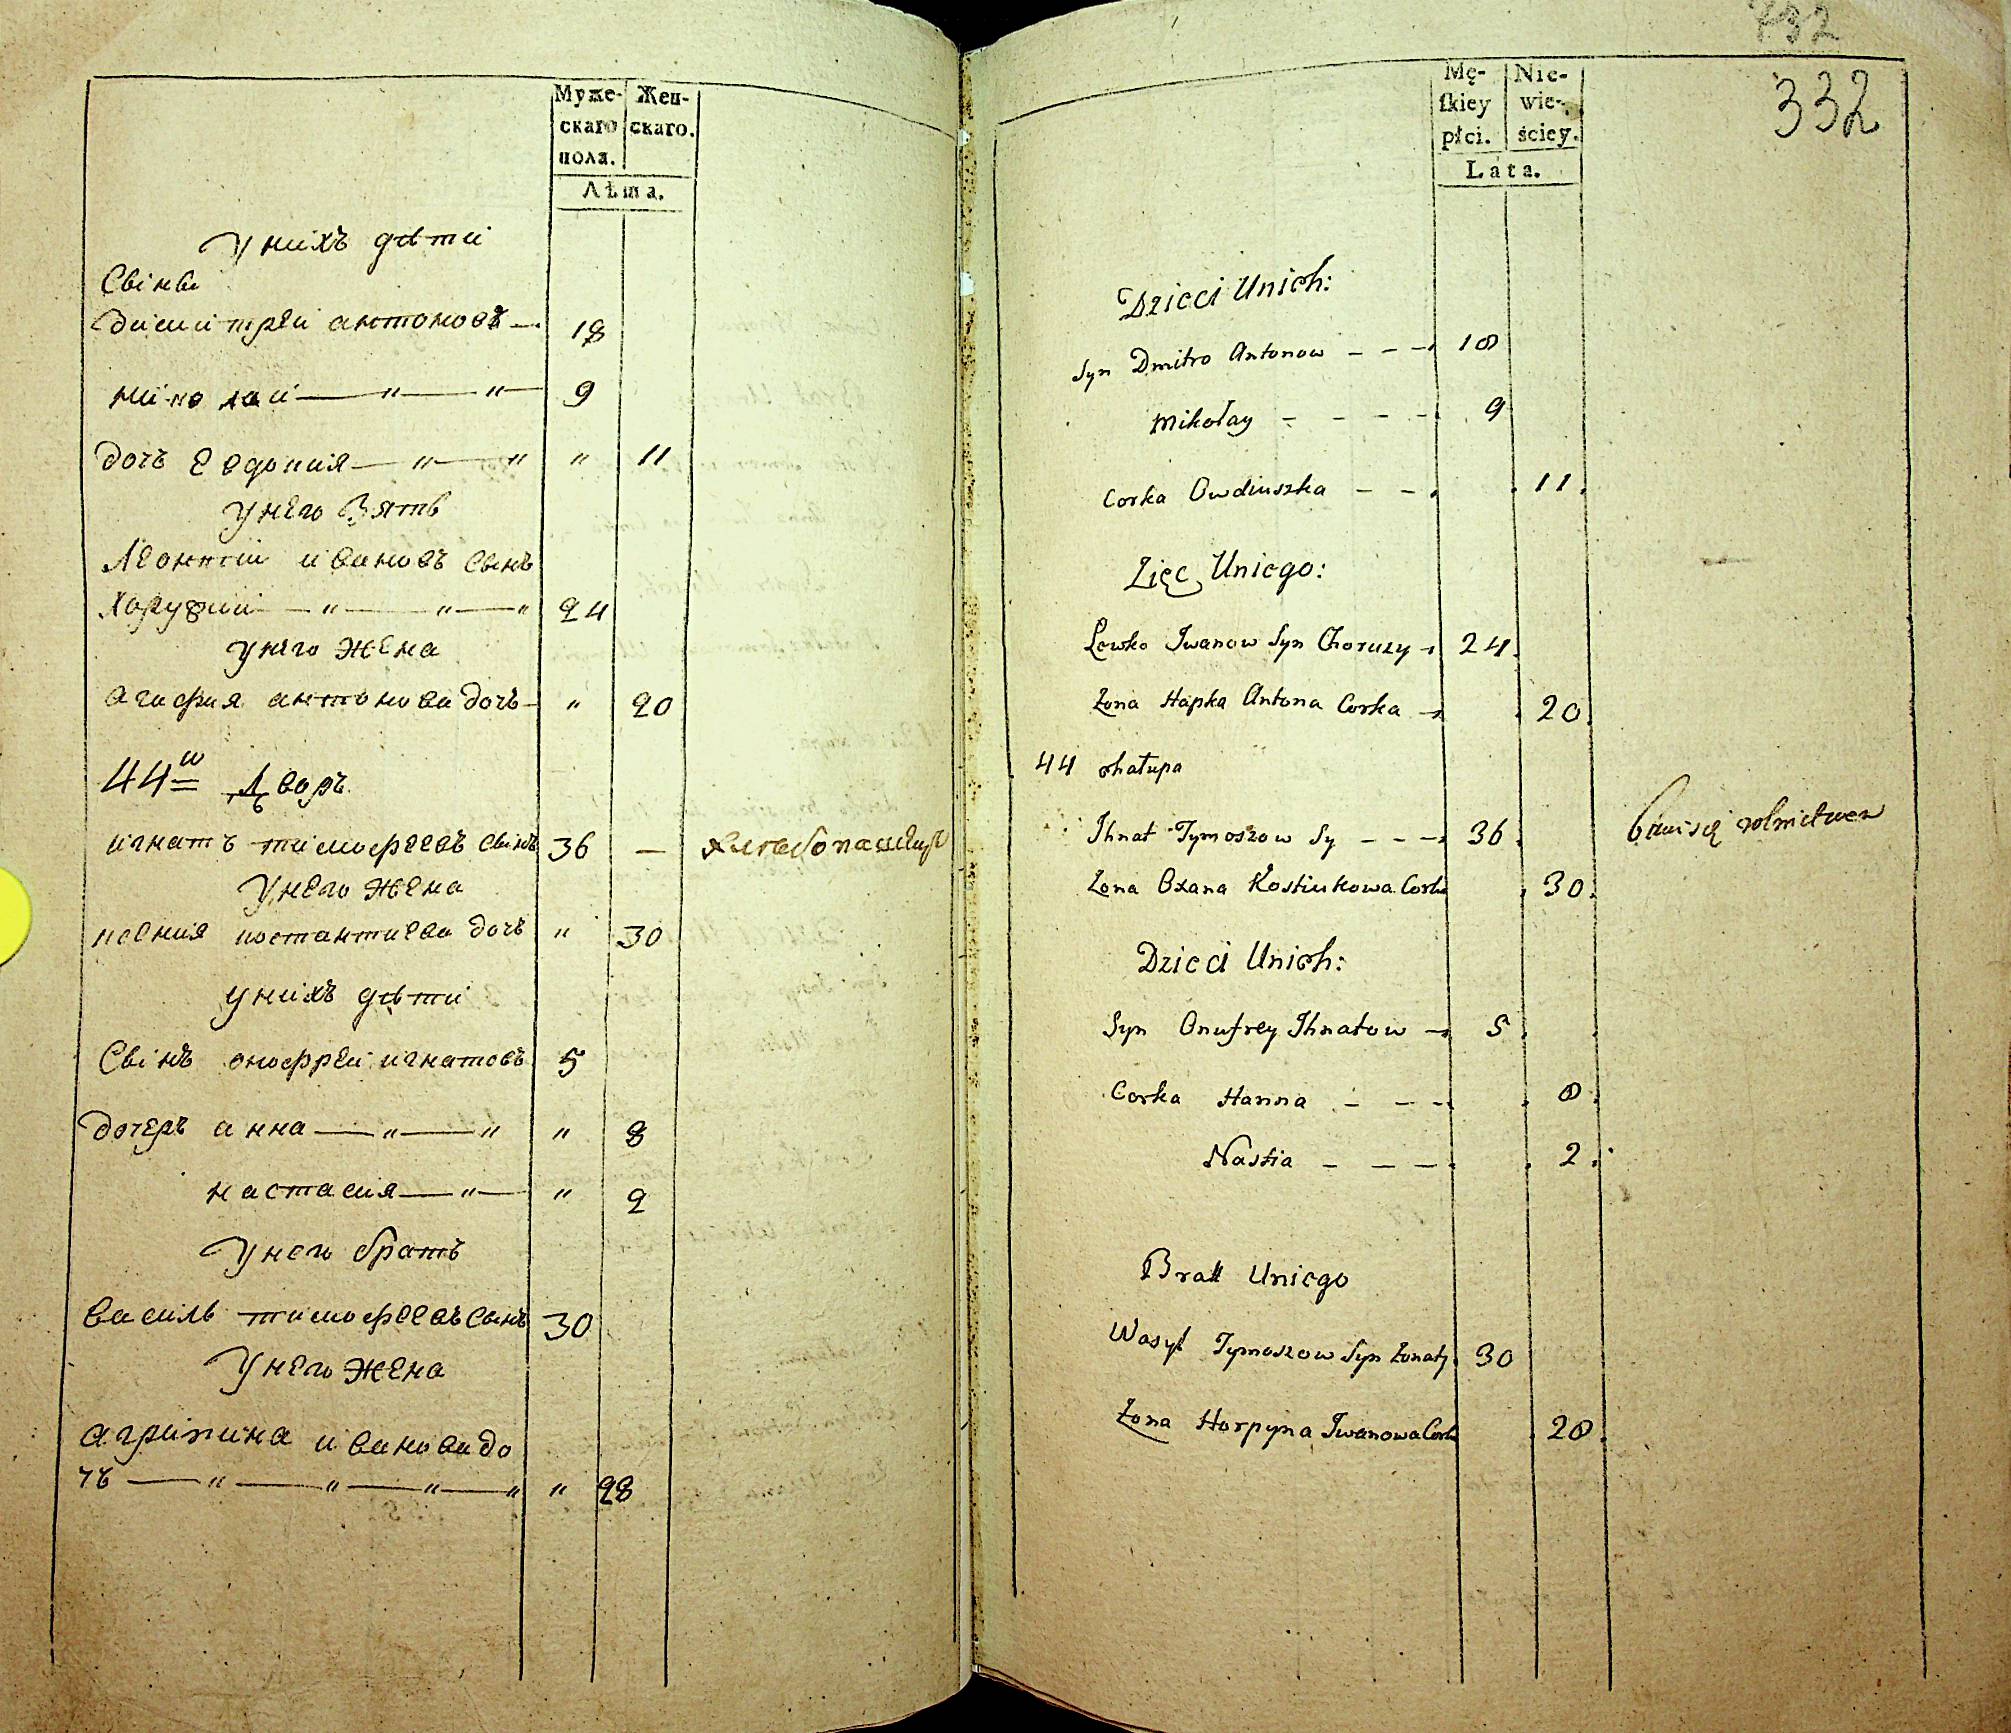 Муже-
скаго
пола.
Жен-
скаго.
Лѣта.
У нихъ дѣти
Свінві
Димитрей антоновъ — 18
николаи — " — " — 9
дочъ Евдокия — " — " " 11
У него Зять
Леонтій ивановъ Свінъ
Хоружий — " — " — " 24
У него жена
агафия антонова дочъ — " 20
44й Дворъ
игнатъ тимофеевъ Свінъ 36 —
У него жена
ксения костантиева дочъ " 30
У нихъ дѣти
Свінъ онофрей игнатовъ 5
дочеръ анна — " — " " 8
настасия — " — " 2
У него братъ
василь тимофеевъ Свінъ 30
У него жена
агрипина иванова до
чъ — " — " — " — " " 28
732
332
Mę-
ſkiey
płci.
Nie-
wie-
ściey.
Lata.
Dzieci Unich:
Syn Dmitro Antonow - - - 18
Mikołay - - - - 9
Corka Owdiuszka - - . 11.
Zięc Uniego:
Lewko Iwanow Syn Choruzy 24.
Zona Hapka Antona Corka . 20.
44 chałupa
Ihnat Tymoszow Sy - - - 36. rolnictwem
Zona Oxana Kostiukowa Corka . 30.
Dzieci Unich:
Syn Onufrey Ihnatow - 5.
Corka Hanna - - - . 8.
Nastia - - - - . 2.
Bratt Uniego
Wasyl Tymoszow Syn Zonaty 30
Zona Horpyna Iwanowa Corka . 28.